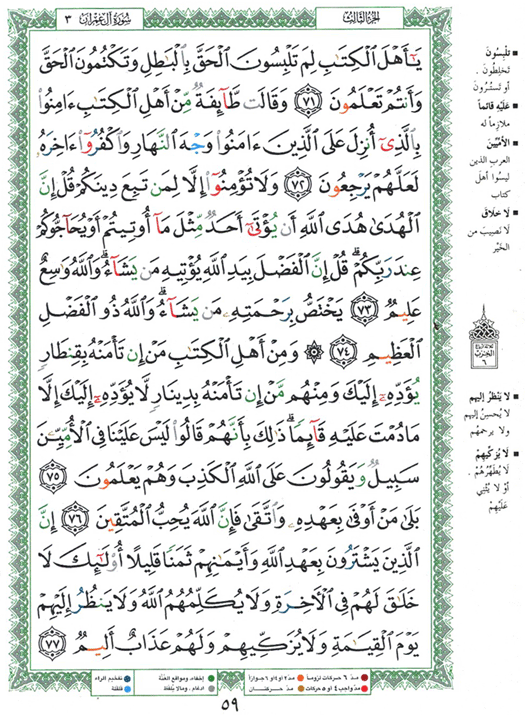 الجزء الثالث
سورة آل عمران ٣
يَـٰٓأَهْلَ ٱلْكِتَـٰبِ لِمَ تَلْبِسُونَ ٱلْحَقَّ بِٱلْبَـٰطِلِ وَتَكْتُمُونَ ٱلْحَقَّ
وَأَنتُمْ تَعْلَمُونَ ٧١ وَقَالَت طَّآئِفَةٌ مِّنْ أَهْلِ ٱلْكِتَـٰبِ ءَامِنُوا۟
بِٱلَّذِىٓ أُنزِلَ عَلَى ٱلَّذِينَ ءَامَنُوا۟ وَجْهَ ٱلنَّهَارِ وَٱكْفُرُوٓا۟ ءَاخِرَهُۥ
لَعَلَّهُمْ يَرْجِعُونَ ٧٢ وَلَا تُؤْمِنُوٓا۟ إِلَّا لِمَن تَبِعَ دِينَكُمْ قُلْ إِنَّ
ٱلْهُدَىٰ هُدَى ٱللَّهِ أَن يُؤْتَىٰٓ أَحَدٌ مِّثْلَ مَآ أُوتِيتُمْ أَوْ يُحَآجُّوكُمْ
عِندَ رَبِّكُمْ ۗ قُلْ إِنَّ ٱلْفَضْلَ بِيَدِ ٱللَّهِ يُؤْتِيهِ مَن يَشَآءُ ۗ وَٱللَّهُ وَٰسِعٌ
عَلِيمٌ ٧٣ يَخْتَصُّ بِرَحْمَتِهِۦ مَن يَشَآءُ ۗ وَٱللَّهُ ذُو ٱلْفَضْلِ
ٱلْعَظِيمِ ٧٤ ۞ وَمِنْ أَهْلِ ٱلْكِتَـٰبِ مَنْ إِن تَأْمَنْهُ بِقِنطَارٍ
يُؤَدِّهِۦٓ إِلَيْكَ وَمِنْهُم مَّنْ إِن تَأْمَنْهُ بِدِينَارٍ لَّا يُؤَدِّهِۦٓ إِلَيْكَ إِلَّا
مَا دُمْتَ عَلَيْهِ قَآئِمًا ۗ ذَٰلِكَ بِأَنَّهُمْ قَالُوا۟ لَيْسَ عَلَيْنَا فِى ٱلْأُمِّيِّـۧنَ
سَبِيلٌ وَيَقُولُونَ عَلَى ٱللَّهِ ٱلْكَذِبَ وَهُمْ يَعْلَمُونَ ٧٥
بَلَىٰ مَنْ أَوْفَىٰ بِعَهْدِهِۦ وَٱتَّقَىٰ فَإِنَّ ٱللَّهَ يُحِبُّ ٱلْمُتَّقِينَ ٧٦ إِنَّ
ٱلَّذِينَ يَشْتَرُونَ بِعَهْدِ ٱللَّهِ وَأَيْمَـٰنِهِمْ ثَمَنًا قَلِيلًا أُو۟لَـٰٓئِكَ لَا
خَلَـٰقَ لَهُمْ فِى ٱلْـَٔاخِرَةِ وَلَا يُكَلِّمُهُمُ ٱللَّهُ وَلَا يَنظُرُ إِلَيْهِمْ
يَوْمَ ٱلْقِيَـٰمَةِ وَلَا يُزَكِّيهِمْ وَلَهُمْ عَذَابٌ أَلِيمٌ ٧٧
تلبسون
تخلطون .
أو تسترون
عليه قائماً
ملازماً له
الأميين
العرب الذين
ليسوا أهل
كتاب
لا خلاق
لا نصيب من
الخير
الحزب
٦
لا ينظر إليهم
لا يحسن إليهم
ولا يرحمهم
لا يزكيهم
لا يطهرهم .
أو لا يثني
عليهم
مد ٦ حركات لزوماً
مد ٢ أو ٤ أو ٦ جوازاً
إخفاء، ومواقع الغنة
تفخيم الراء
مد واجب ٤ أو ٥ حركات
مد حركتان
ادغام ، وما لا يلفظ
قلقلة
٥٩